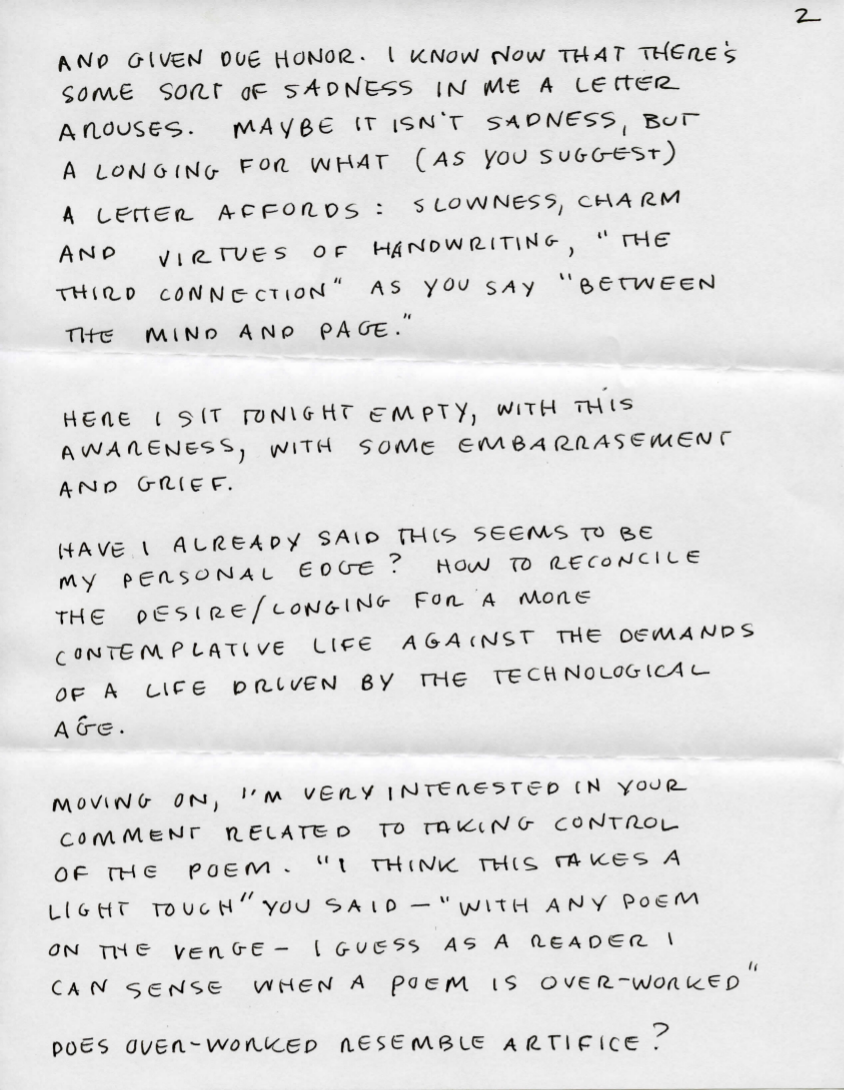 2
AND GIVEN DUE HONOR. I KNOW NOW THAT THERE'S
SOME SORT OF SADNESS IN ME A LETTER
AROUSES. MAYBE IT ISN'T SADNESS, BUT
A LONGING FOR WHAT (AS YOU SUGGEST)
A LETTER AFFORDS: SLOWNESS, CHARM
AND VIRTUES OF HANDWRITING, "THE
THIRD CONNECTION" AS YOU SAY "BETWEEN
THE MIND AND PAGE."
HERE I SIT TONIGHT EMPTY, WITH THIS
AWARENESS, WITH SOME EMBARRASEMENT
AND GRIEF.
HAVE I ALREADY SAID THIS SEEMS TO BE
MY PERSONAL EDGE? HOW TO RECONCILE
THE DESIRE/LONGING FOR A MORE
CONTEMPLATIVE LIFE AGAINST THE DEMANDS
OF A LIFE DRIVEN BY THE TECHNOLOGICAL
AGE.
MOVING ON, I'M VERY INTERESTED IN YOUR
COMMENT RELATED TO TAKING CONTROL
OF THE POEM. "I THINK THIS TAKES A
LIGHT TOUCH" YOU SAID – "WITH ANY POEM
ON THE VERGE – I GUESS AS A READER I
CAN SENSE WHEN A POEM IS OVER-WORKED"
DOES OVER-WORKED RESEMBLE ARTIFICE?